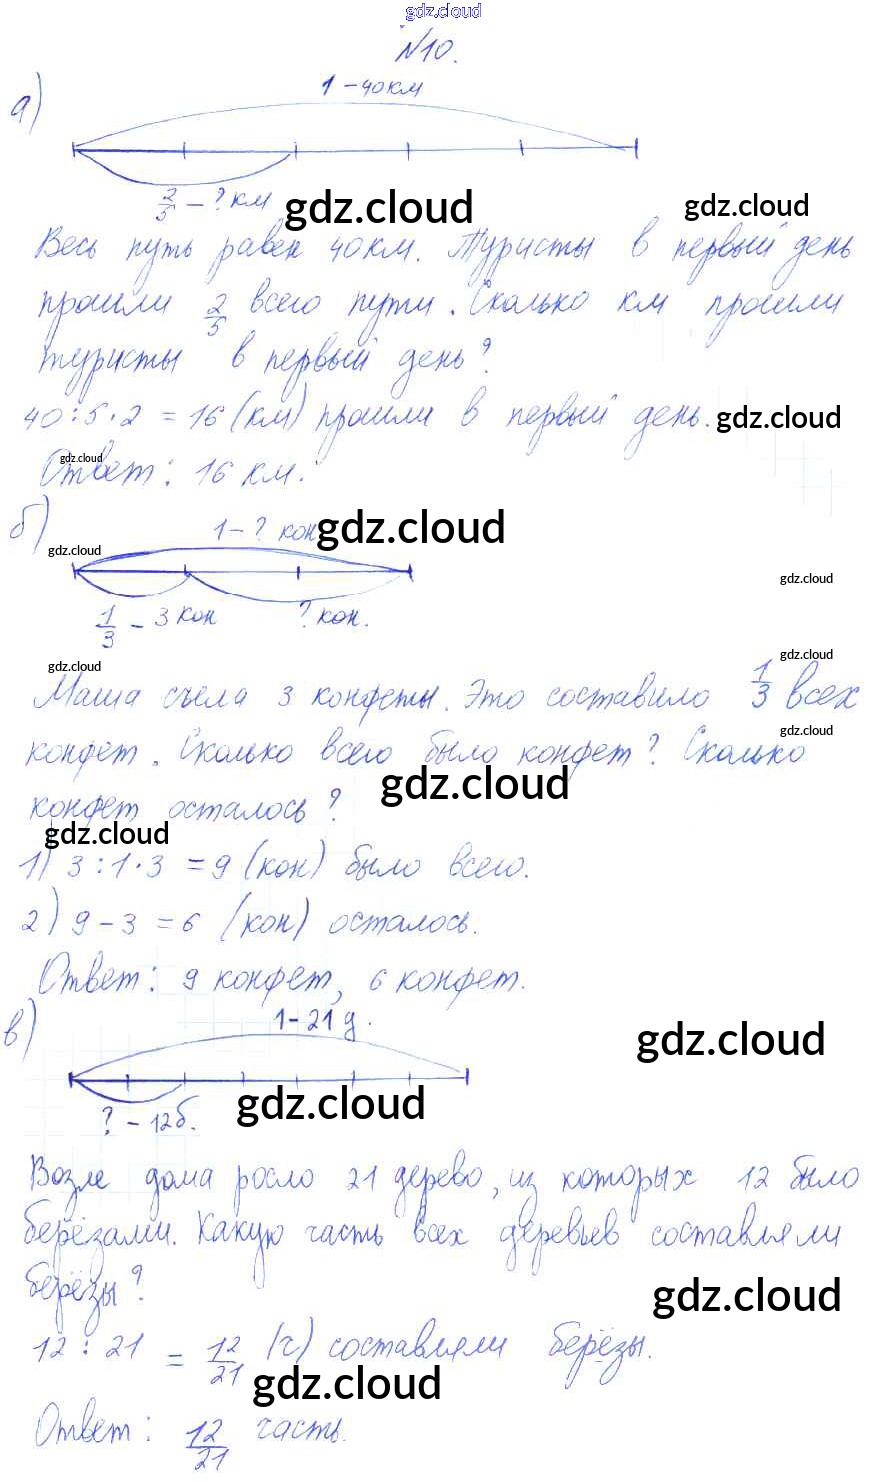 gdz.cloud
№10.
а)
1 - 40 км
2/5 - ? км
gdz.cloud
gdz.cloud
Весь путь равен 40 км. Туристы в первый день
прошли 2/5 всего пути. Сколько км прошли
туристы в первый день?
40 : 5 · 2 = 16 (км) прошли в первый день.
gdz.cloud
gdz.cloud
Ответ: 16 км.
б)
1 - ? кон
gdz.cloud
gdz.cloud
gdz.cloud
1/3 - 3 кон
? кон.
gdz.cloud
gdz.cloud
Маша съела 3 конфеты. Это составило 1/3 всех
gdz.cloud
конфет. Сколько всего было конфет? Сколько
gdz.cloud
конфет осталось?
gdz.cloud
1) 3 : 1 · 3 = 9 (кон) было всего.
2) 9 - 3 = 6 (кон) осталось.
Ответ: 9 конфет, 6 конфет.
в)
1 - 21 д.
gdz.cloud
? - 12 б.
gdz.cloud
Возле дома росло 21 дерево, из которых 12 было
берёзами. Какую часть всех деревьев составляли
берёзы?
gdz.cloud
12 : 21 = 12/21 (ч) составляли берёзы.
gdz.cloud
Ответ: 12/21 часть.